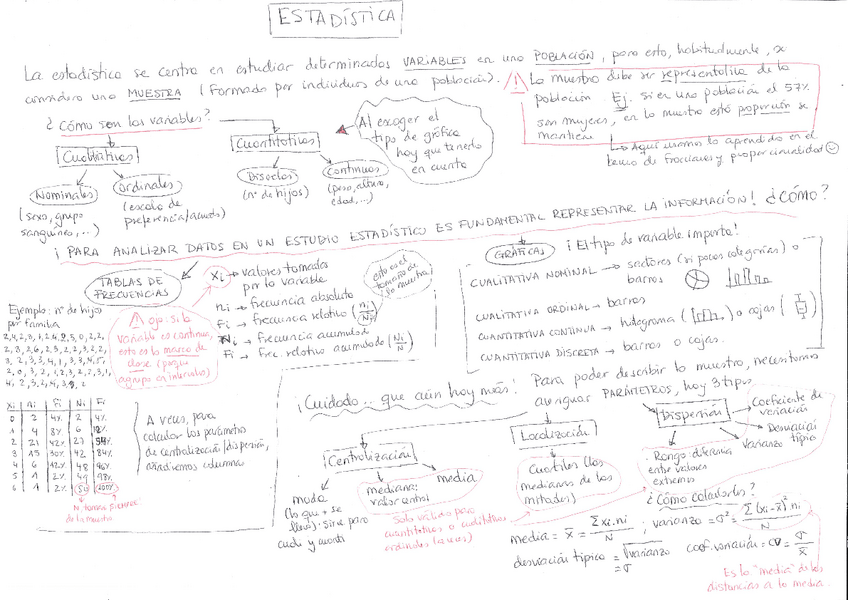 ESTADÍSTICA
La estadística se centra en estudiar determinadas VARIABLES en una POBLACIÓN, para esto, habitualmente, se
considera una MUESTRA (Formada por individuos de una población).
La muestra debe ser representativa de la
población. Ej. Si en una población el 57%
son mujeres, en la muestra esta proporción se
mantiene
Aquí usamos lo aprendido en el
tema de fracciones y proporcionalidad
¿Cómo son las variables?
Cualitativas
Nominales
(sexo, grupo
sanguíneo, ...)
Ordinales
(escala de
preferencia/acuerdo)
Cuantitativas
Discretas
(nº de hijos)
Continuas
(peso, altura,
edad, ...)
Al escoger el
tipo de gráfica
hay que tenerlo
en cuenta
¡PARA ANALIZAR DATOS EN UN ESTUDIO ESTADÍSTICO ES FUNDAMENTAL REPRESENTAR LA INFORMACIÓN! ¿CÓMO?
TABLAS DE
FRECUENCIAS
xi → valores tomados
por la variable
ni → frecuencia absoluta
fi → frecuencia relativa (ni/N)
Ni → frecuencia acumulada
Fi → frec. relativa acumulada (Ni/N)
esto es el
tamaño de
la muestra
ojo: si la
variable es continua
esto es la marca de
clase. (porque
agrupo en intervalos)
Ejemplo: nº de hijos
por familia
xi ni fi Ni Fi
0 2 4% 2 4%
1 4 8% 6 12%
2 21 42% 27 54%
3 15 30% 42 84%
4 6 12% 48 96%
5 1 2% 49 98%
6 1 2% 50 100%
N: tamaño
de la muestra
A veces, para
calcular los parámetros
de centralización/dispersión,
añadiremos columna
GRÁFICAS
¡El tipo de variable importa!
CUALITATIVA NOMINAL → sectores (si pocas categorías) o
barras
CUALITATIVA ORDINAL → barras
CUANTITATIVA CONTINUA → histograma ( ) o cajas ( )
CUANTITATIVA DISCRETA → barras o cajas.
¡Cuidado... que aún hay más! Para poder describir la muestra, necesitamos
averiguar PARÁMETROS, hay 3 tipos
Centralización
moda
(lo que + se
lleva). Sirve para
cuali y cuanti
mediana:
valor central
media
Solo válidas para
cuantitativas o cualitativas
ordinales
Localización
Cuartiles (las
medianas de las
mitades)
Dispersión
Coeficiente de
variación
Desviación
típica
Varianza
Rango: diferencia
entre valores
extremos
¿Cómo calcularlos?
media = x̄ = Σxi.ni/N ; varianza = σ² = Σ(xi-x̄)².ni/N
desviación típica = √varianza = σ coef. variación = CV = σ/x̄
Es la "media" de las
distancias a la media.